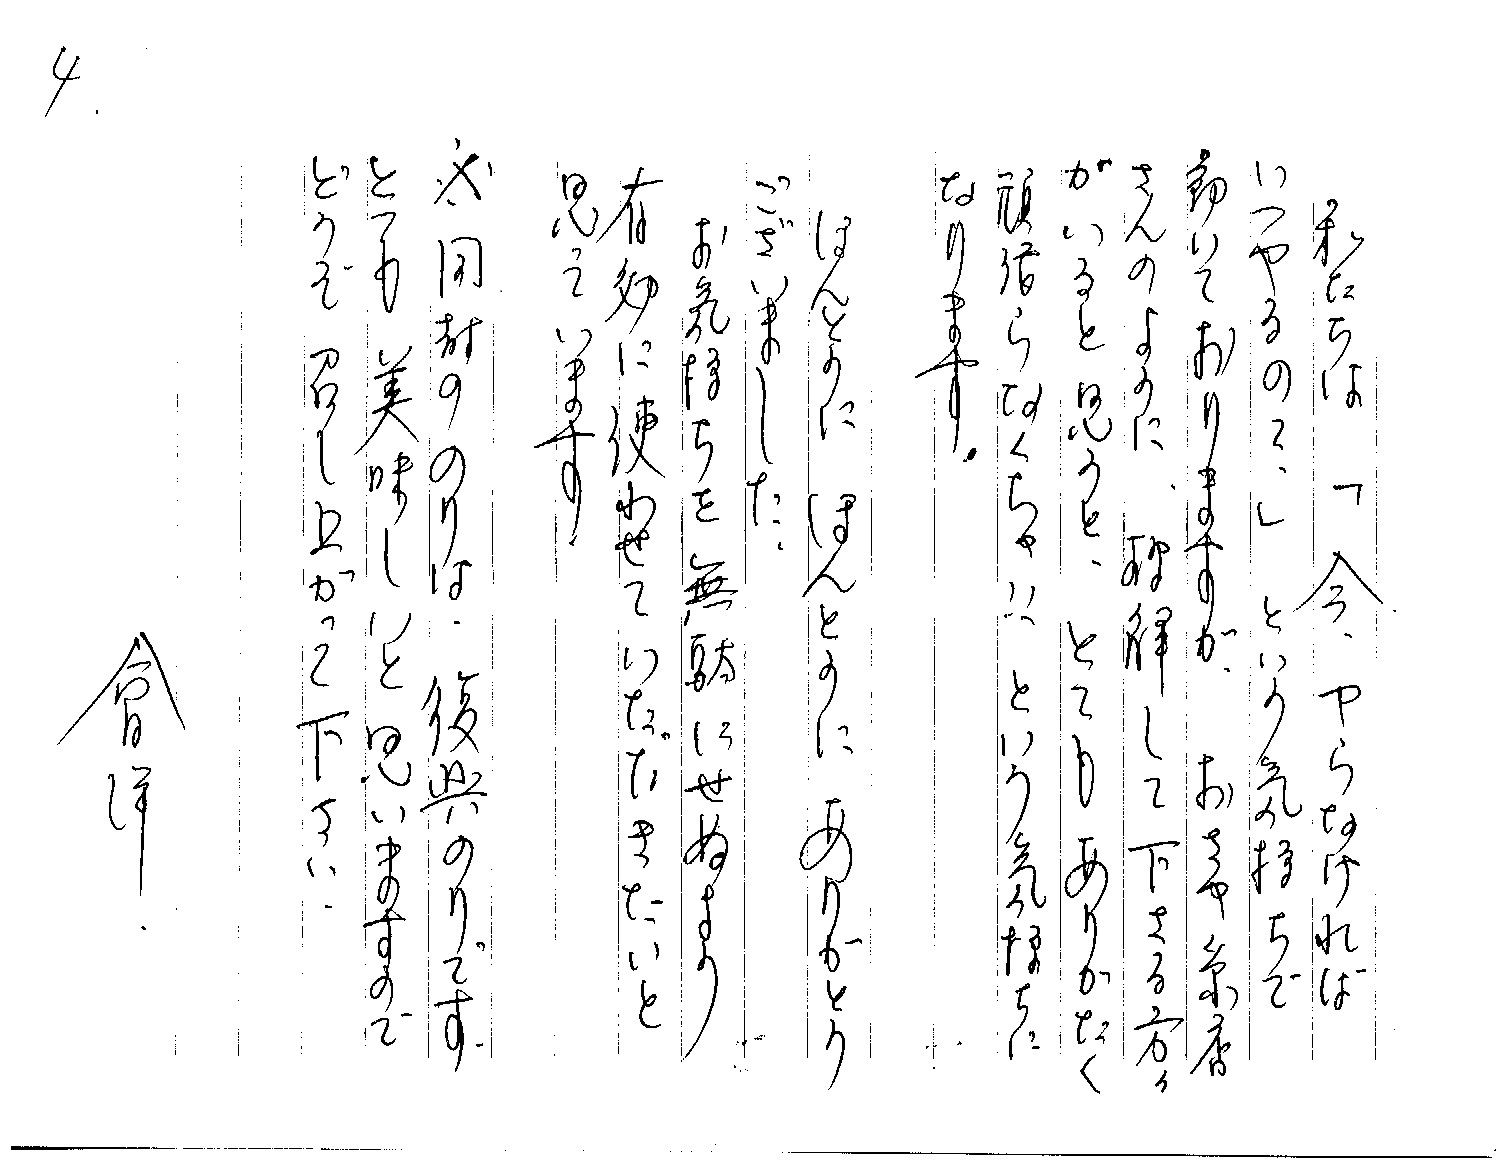 4.
私たちは「今、やらなければ
いつやるのて、」という気持ちで
動いておりますが、おちゃ茶屋
さんのように、理解して下さる方々
がいると思うと、とてもありがたく
頑張らなくちゃ!!という気持ちに
なります。
ほんとうに ほんとうに ありがとう
ございました.
お気持ちを無駄にせぬよう
有効に使わせていただきたいと
思っています.
※同封ののりは.復興のりです.
とても美味しいと思いますので
どうぞ召し上がって下さい.
會洋.